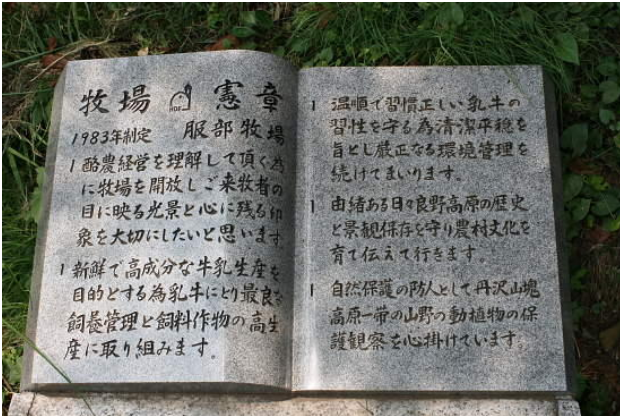 牧場 憲章
1983年制定 服部牧場
1 酪農経営を理解して頂く為
に牧場を開放しご来牧者の
目に映る光景と心に残る印
象を大切にしたいと思います
1 新鮮で高成分な牛乳生産を
目的とする為乳牛にとり最良な
飼養管理と飼料作物の高生
産に取り組みます。
1 温順で習慣正しい乳牛の
習性を守る為清潔平穏を
旨とし厳正なる環境管理を
続けてまいります。
1 由緒ある日々良野高原の歴史
と景観保存を守り農村文化を
育て伝えて行きます。
1 自然保護の防人として丹沢山塊
高原一帯の山野の動植物の保
護観察を心掛けています。